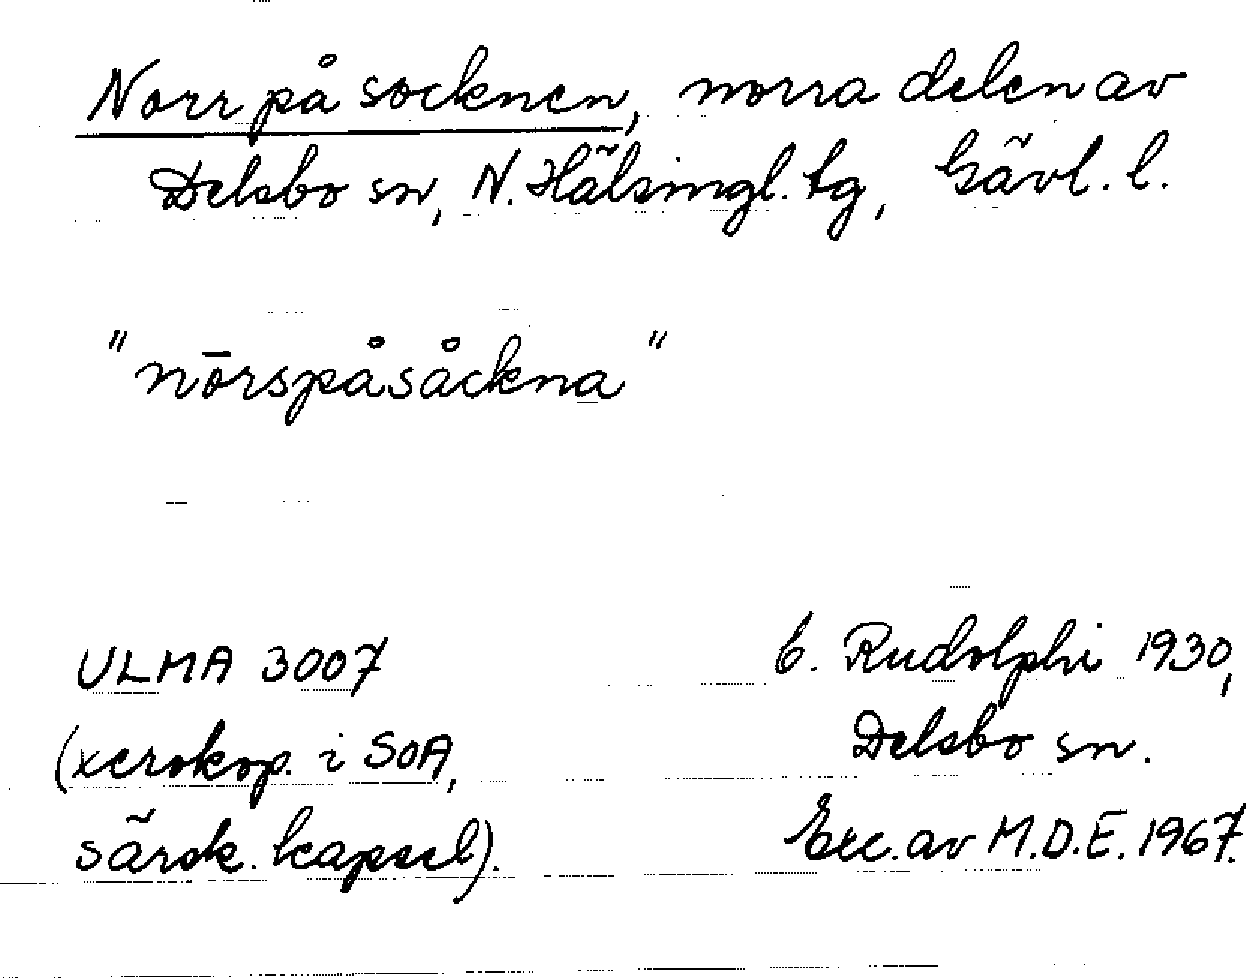 Norr på socknen, norra delen av
Delsbo sn, N. Hälsingl. tg, Gävl. l.
"nōrspåsåckna"
ULMA 3007
(xerokop. i SOA,
särsk. kapsel).
E. Rudolphi 1930,
Delsbo sn.
Exc. av M.D.E. 1967.